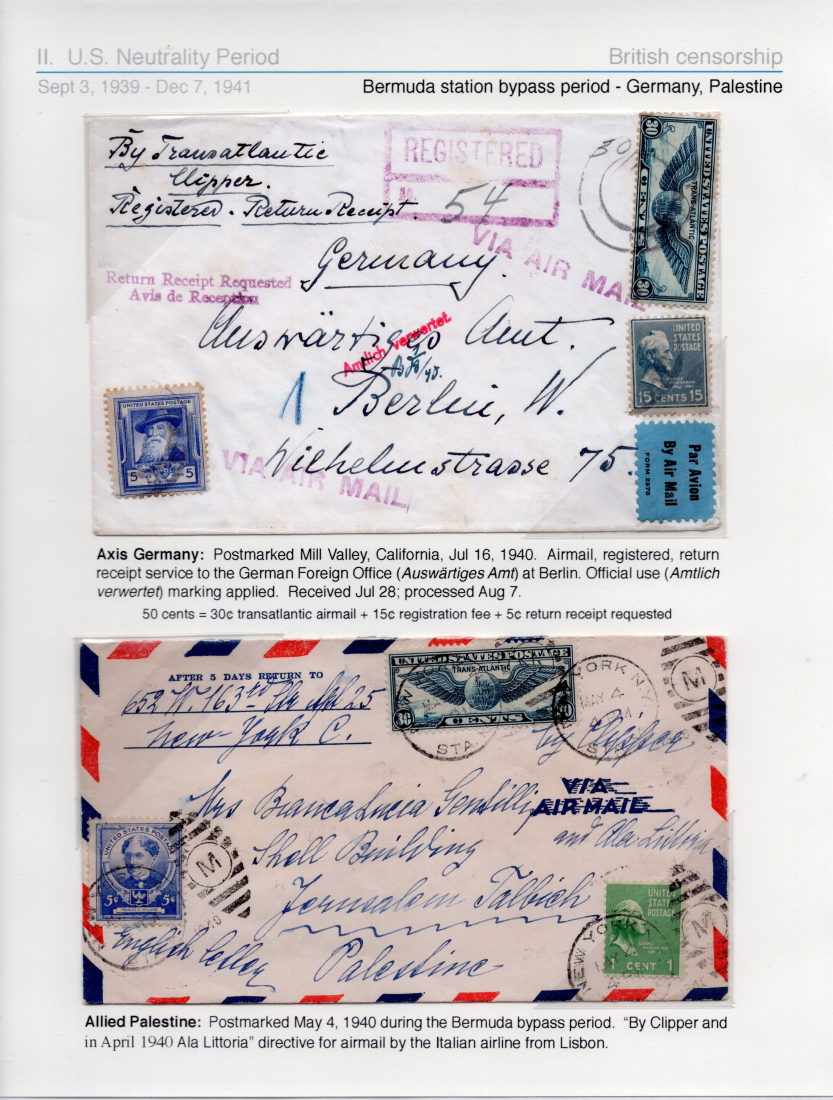 II. U.S. Neutrality Period
British censorship
Sept 3, 1939 - Dec 7, 1941
Bermuda station bypass period - Germany, Palestine
By Transatlantic
Clipper.
Registered. Return Receipt.
REGISTERED
54
30
VIA AIR MAIL
Germany.
Return Receipt Requested
Avis de Reception
Auswärtiges Amt.
Amtlich verwertet
1 Berlin, W.
Wilhelmstrasse 75.
VIA AIR MAIL
30 UNITED STATES POSTAGE
TRANS-ATLANTIC
CENTS 30
UNITED
STATES
POSTAGE
15 CENTS 15
Par Avion
By Air Mail
FORM 2978
UNITED STATES POSTAGE
5 5
Axis Germany: Postmarked Mill Valley, California, Jul 16, 1940. Airmail, registered, return
receipt service to the German Foreign Office (Auswärtiges Amt) at Berlin. Official use (Amtlich
verwertet) marking applied. Received Jul 28; processed Aug 7.
50 cents = 30¢ transatlantic airmail + 15¢ registration fee + 5¢ return receipt requested
AFTER 5 DAYS RETURN TO
652 W. 163rd
New-York C.
UNITED STATES POSTAGE
TRANS-ATLANTIC
30 CENTS 30
YORK N.Y.
MAY 4
STA
M
by Clipper
VIA
AIR MAIL
Mrs Bianca Lucia Gentilli
and Ala Littoria
Shell Building
Jerusalem Talbieh
English Letter Palestine
UNITED STATES POSTAGE
5¢ 5¢
M
UNITED
STATES
POSTAGE
1 CENT 1
NEW YORK
M
Allied Palestine: Postmarked May 4, 1940 during the Bermuda bypass period. “By Clipper and
in April 1940 Ala Littoria” directive for airmail by the Italian airline from Lisbon.